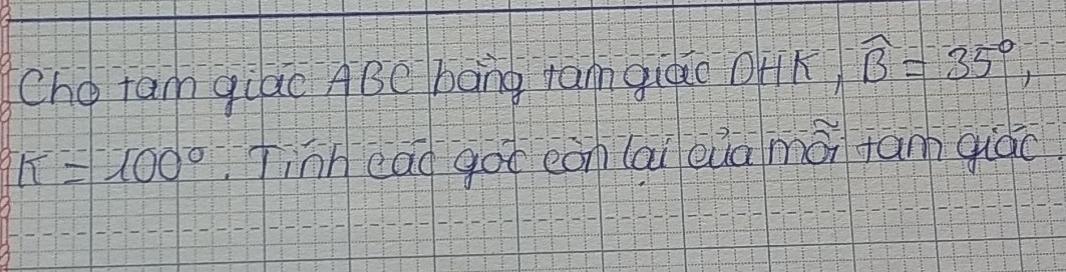 Cho tam giác ABC bằng tam giác DHK, B̂ = 35°,
K = 100°. Tính các góc còn lại của mỗi tam giác.